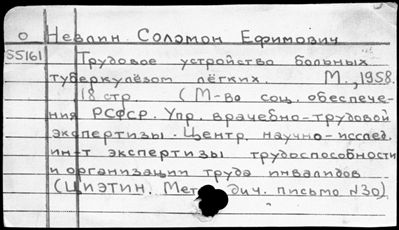 о Невлин. Соломон Ефимович
55161 Трудовое устройство больных
туберкулёзом лёгких. М., 1958.
18 стр. (М-во соц. обеспече-
ния РСФСР. Упр. врачебно-трудовой
экспертизы. Центр. научно-исслед.
ин-т экспертизы трудоспособности
и организации труда инвалидов
(ЦИЭТИН. Мет дич. письмо №30)